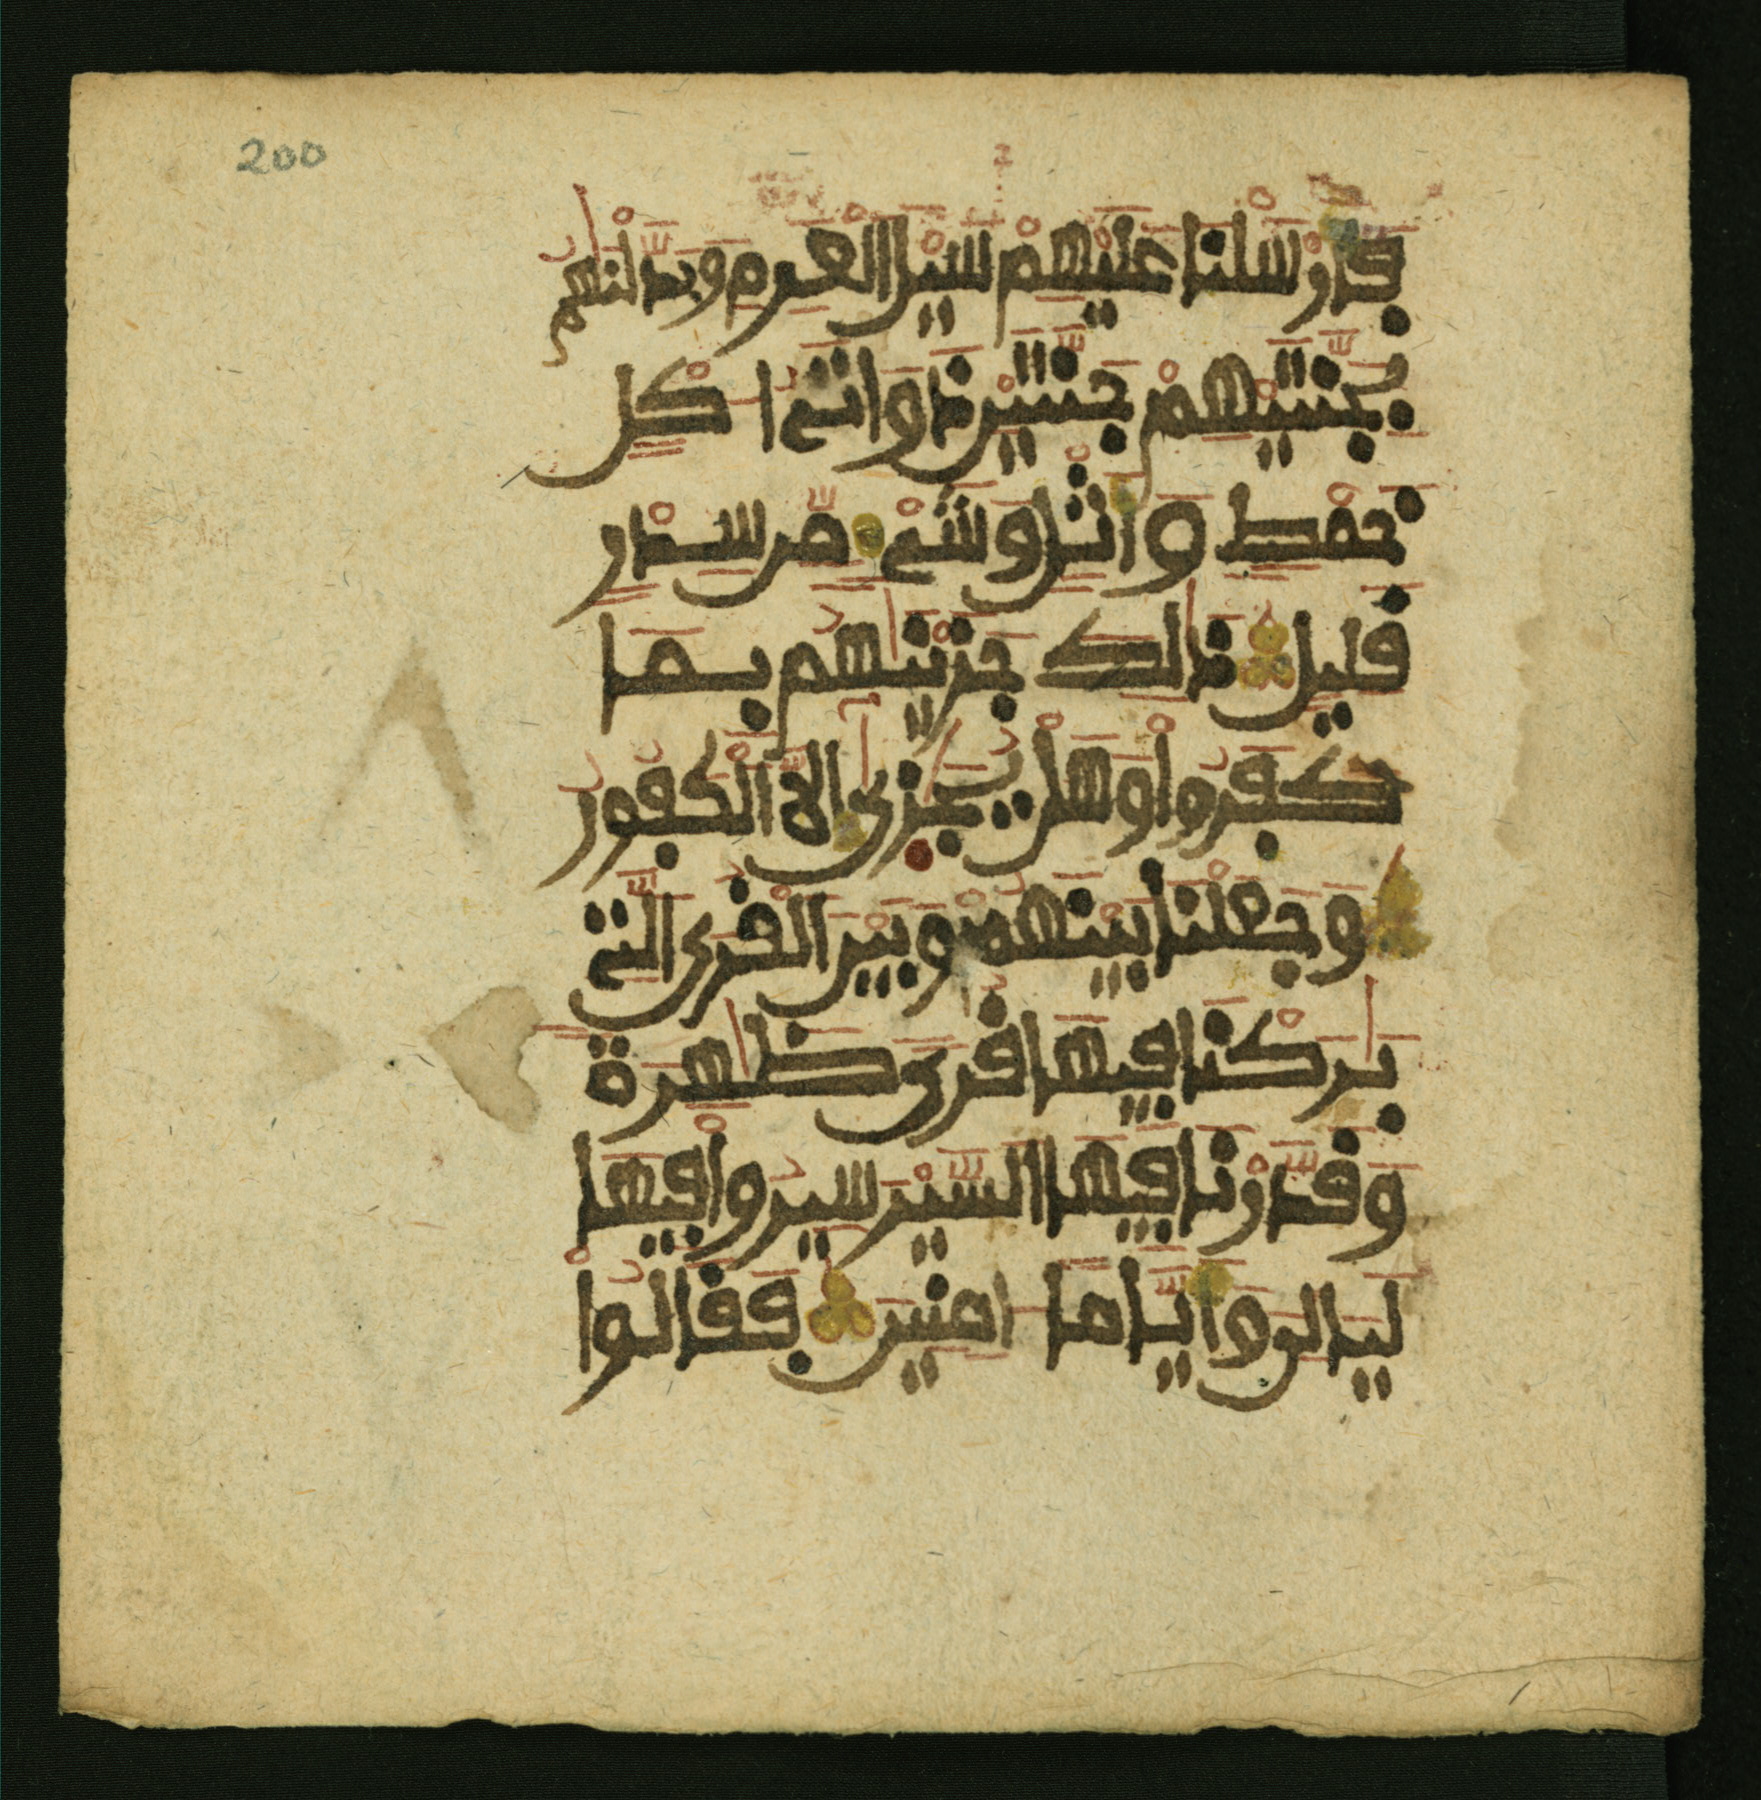 200
فَأَرْسَلْنَا عَلَيْهِمْ سَيْلَ الْعَرِمِ وَبَدَّلْنَٰهُم
بِجَنَّتَيْهِمْ جَنَّتَيْنِ ذَوَاتَىْ أُكْلٍ
خَمْطٍ وَأَثْلٍ وَشَىْءٍ مِّن سِدْرٍ
قَلِيلٍ ذَٰلِكَ جَزَيْنَٰهُم بِمَا
كَفَرُوا وَهَلْ يُجَٰزَىٰ إِلَّا الْكَفُورُ
وَجَعَلْنَا بَيْنَهُمْ وَبَيْنَ الْقُرَى الَّتِى
بَٰرَكْنَا فِيهَا قُرًى ظَٰهِرَةً
وَقَدَّرْنَا فِيهَا السَّيْرَ سِيرُوا فِيهَا
لَيَالِىَ وَأَيَّامًا ءَامِنِينَ فَقَالُوا